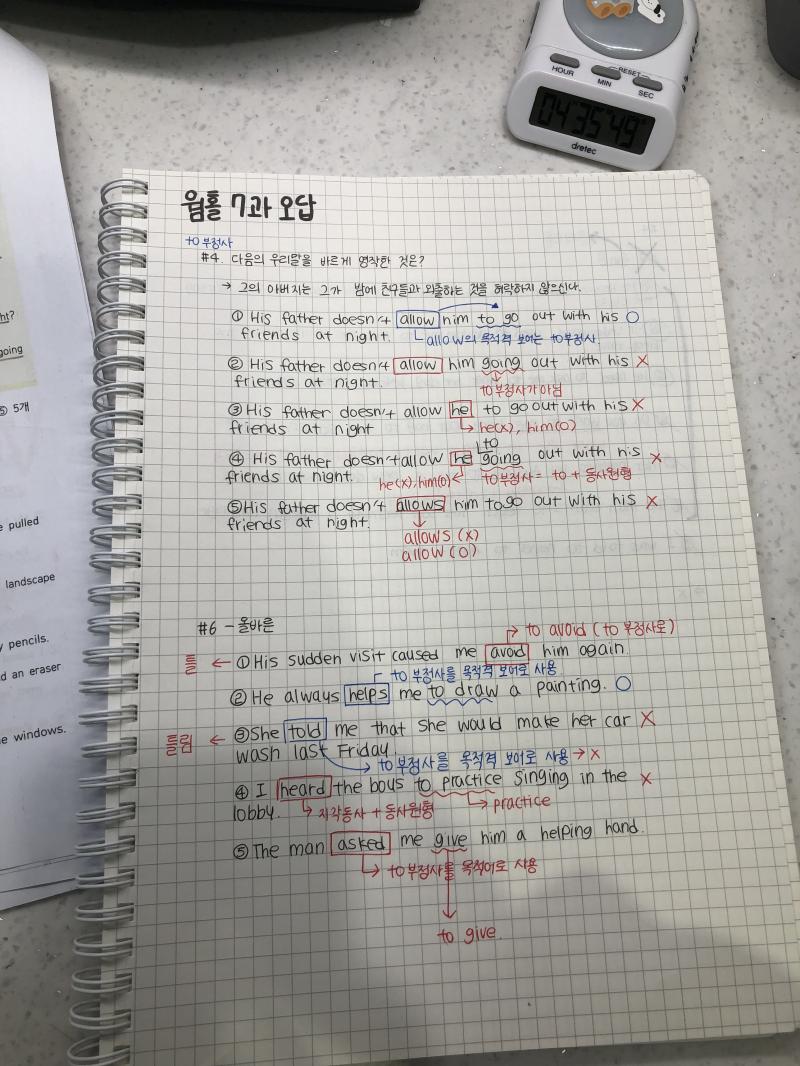 HOUR
MIN
RESET
SEC
04:35 49
dretec
웜홀 7과 오답
to 부정사
#4. 다음의 우리말을 바르게 영작한 것은?
→ 그의 아버지는 그가 밤에 친구들과 외출하는 것을 허락하지 않으신다.
① His father doesn't allow him to go out with his O
friends at night.
allow의 목적격 보어는 to부정사.
② His father doesn't allow him going out with his X
friends at night.
to부정사가 아님
③ His father doesn't allow he to go out with his X
friends at night
→ he(x), him(o)
to
④ His father doesn't allow he going out with his X
friends at night.
he(x), him(o)
to부정사 = to + 동사원형
⑤ His father doesn't allows him to go out with his X
friends at night.
allows (X)
allow (O)
#6 - 올바른
→ to avoid (to 부정사로)
틀 ← ① His sudden visit caused me avoid him again.
to 부정사를 목적격 보어로 사용
② He always helps me to draw a painting. O
틀림 ← ③ She told me that she would make her car X
wash last Friday.
→ to 부정사를 목적격 보어로 사용 → x
④ I heard the boys to practice singing in the X
lobby.
→ 지각동사 + 동사원형
→ practice
⑤ The man asked me give him a helping hand.
→ to 부정사를 목적어로 사용
to give.
ht?
going
⑤ 5개
e pulled
landscape
y pencils.
d an eraser
e windows.